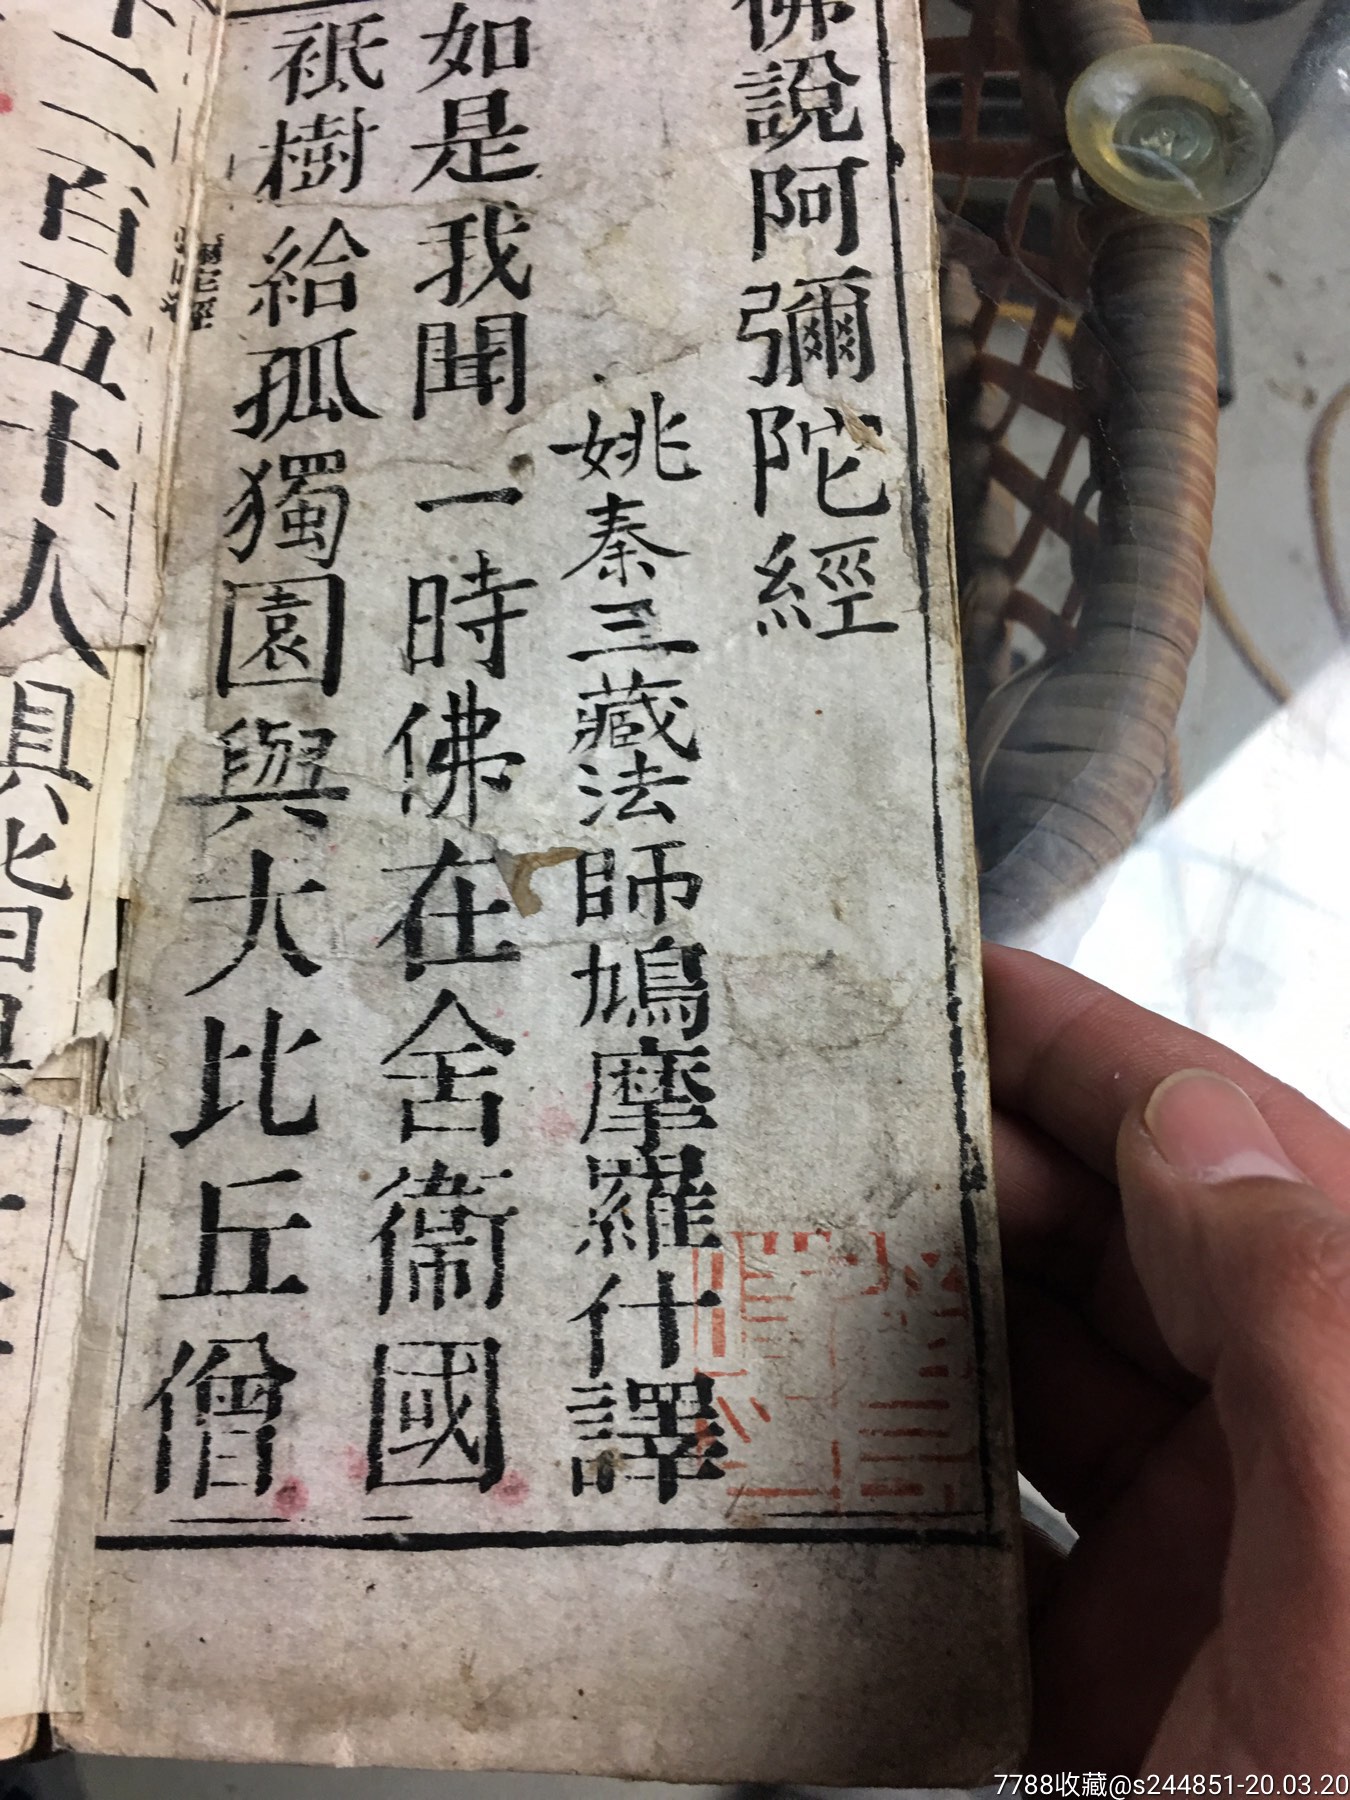 佛說阿彌陀經
姚秦三藏法師鳩摩羅什譯
如是我聞一時佛在舍衞國
祗樹給孤獨園與大比丘僧
彌陀經
二百五十人俱皆是大
7788收藏@s244851-20.03.20